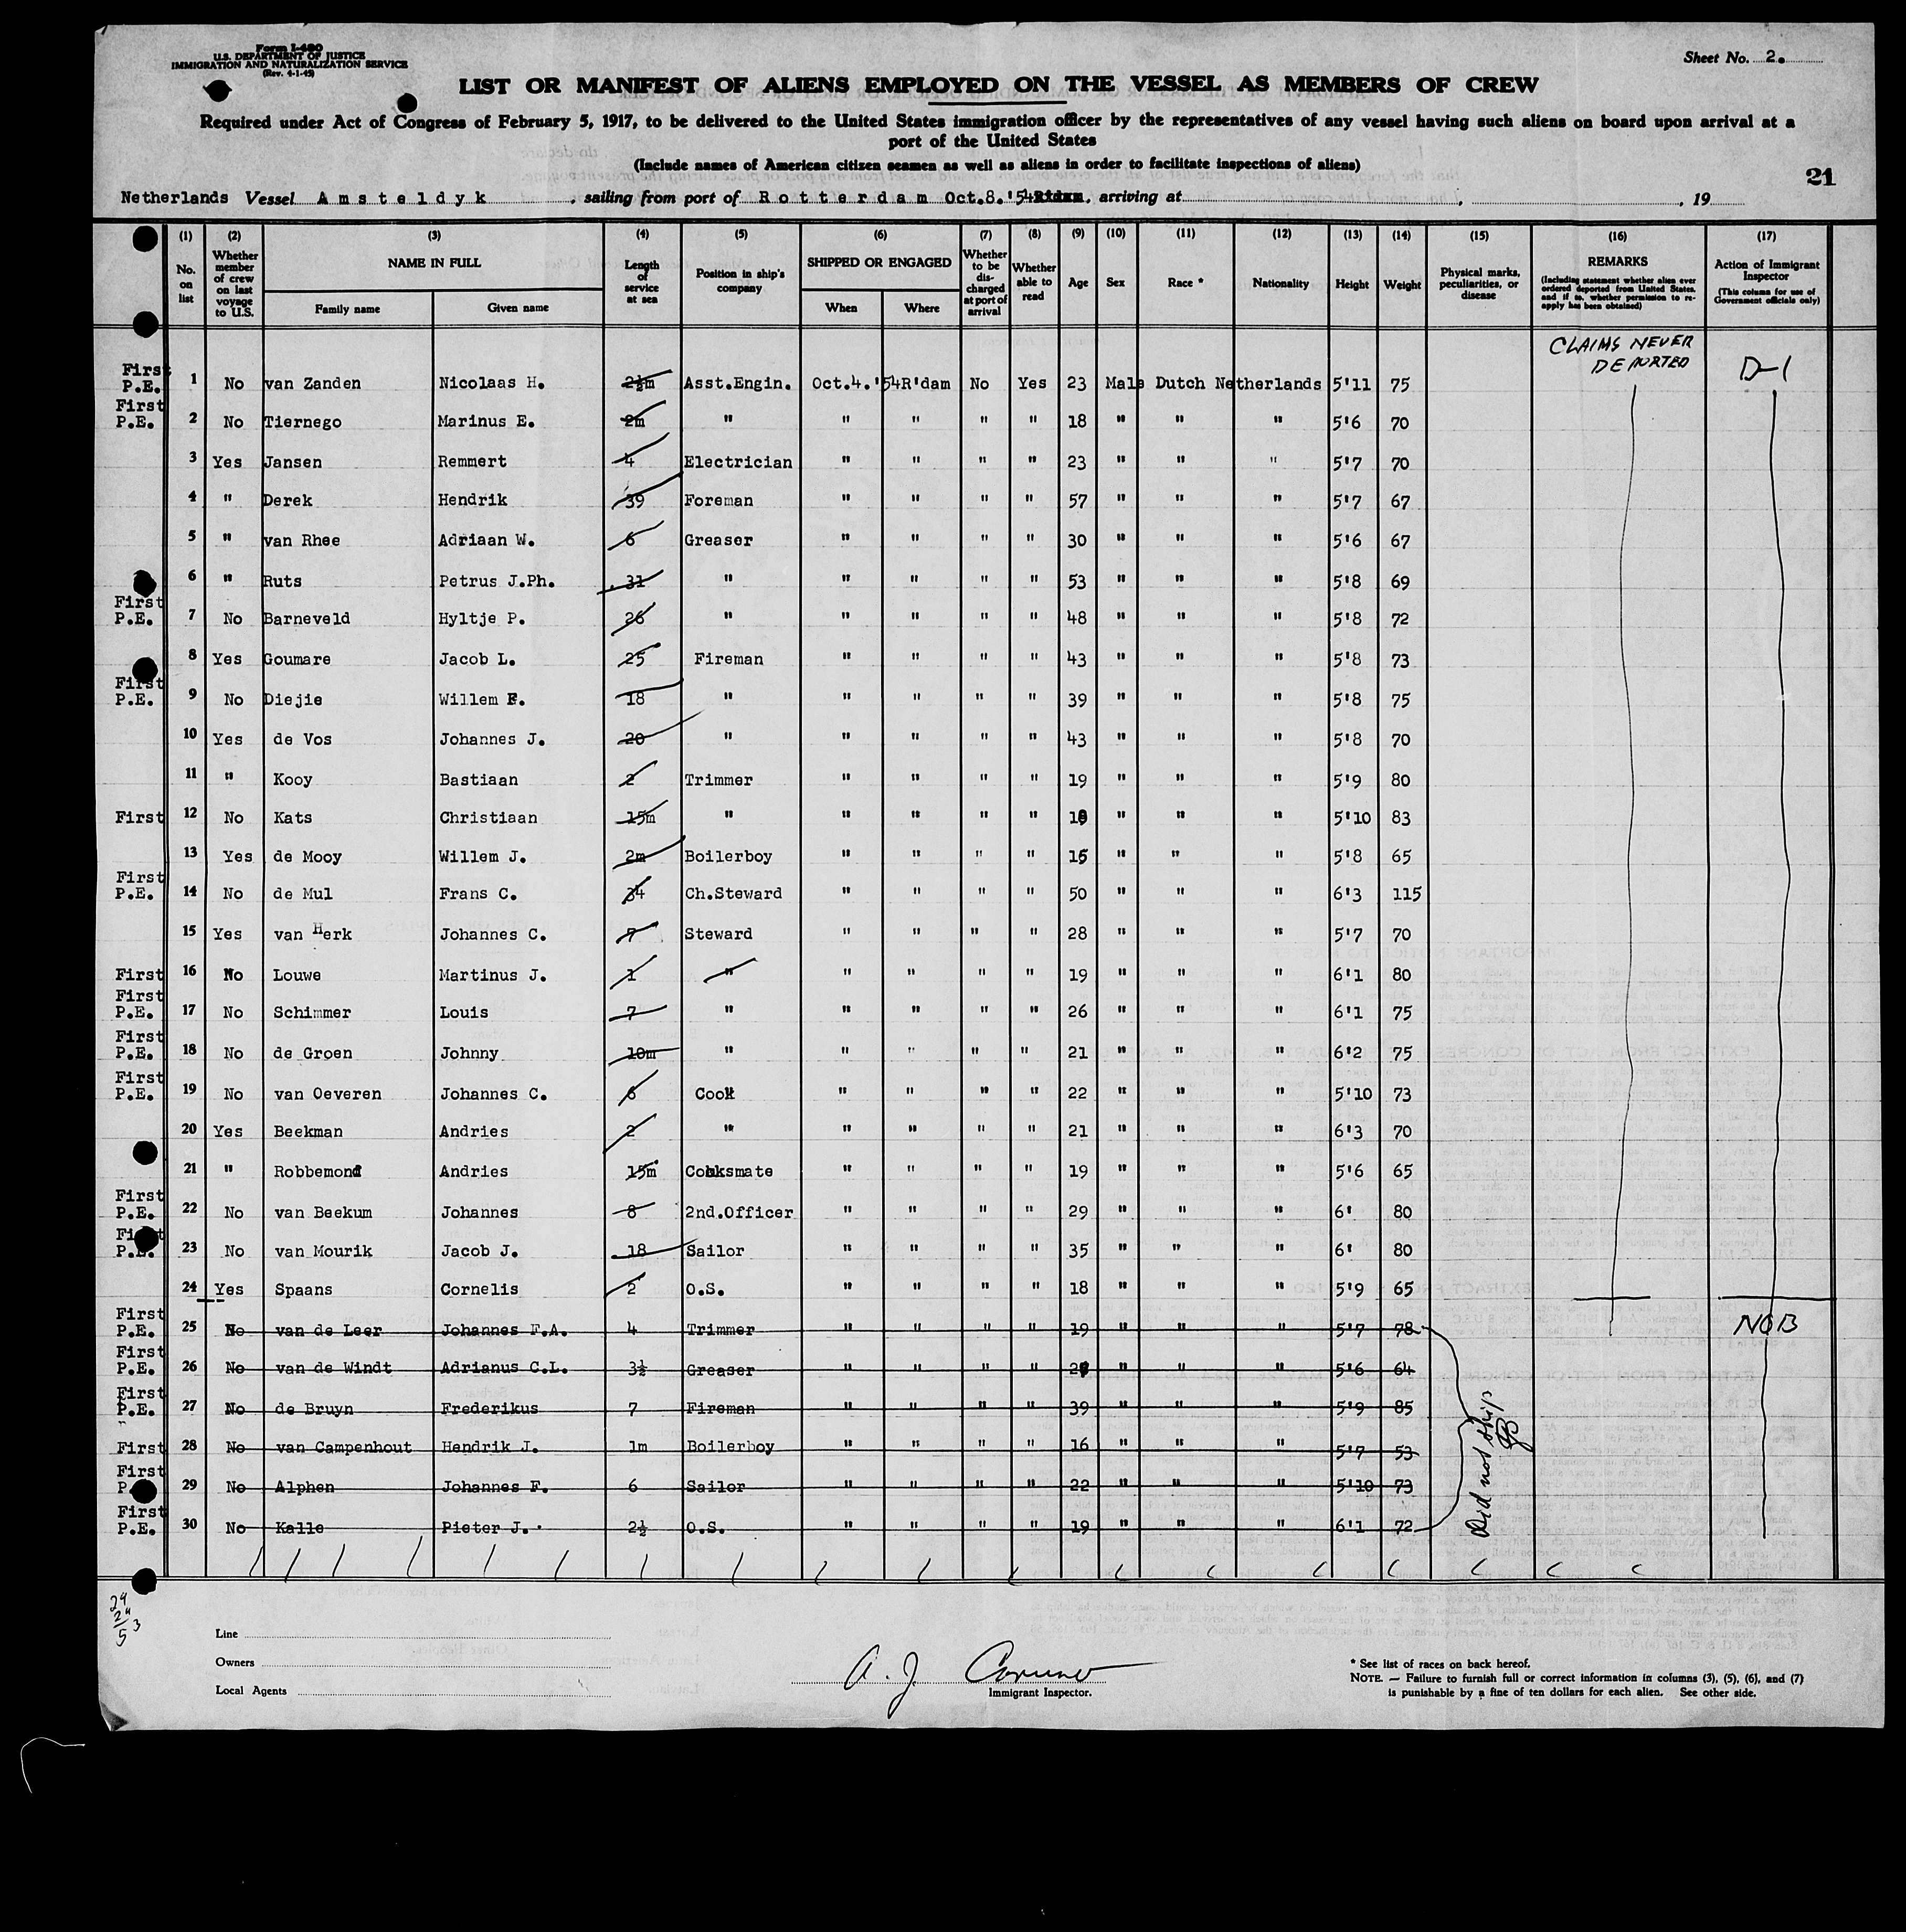 Form I-480
U.S. DEPARTMENT OF JUSTICE
IMMIGRATION AND NATURALIZATION SERVICE
(Rev. 4-1-45)
Sheet No. 2.
LIST OR MANIFEST OF ALIENS EMPLOYED ON THE VESSEL AS MEMBERS OF CREW
Required under Act of Congress of February 5, 1917, to be delivered to the United States immigration officer by the representatives of any vessel having such aliens on board upon arrival at a
port of the United States
(Include names of American citizen seamen as well as aliens in order to facilitate inspections of aliens)
21
Netherlands Vessel Amsteldyk, sailing from port of Rotterdam Oct.8.'54, arriving at , , 19
(1) (2) (3) (4) (5) (6) (7) (8) (9) (10) (11) (12) (13) (14) (15) (16) (17)
No. on list | Whether member of crew on last voyage to U.S. | NAME IN FULL Family name Given name | Length of service at sea | Position in ship's company | SHIPPED OR ENGAGED When Where | Whether to be discharged at port of arrival | Whether able to read | Age | Sex | Race * | Nationality | Height | Weight | Physical marks, peculiarities, or disease | REMARKS (Including statement whether alien ever ordered deported from United States, and if so, whether permission to re-apply has been obtained) | Action of Immigrant Inspector (This column for use of Government officials only)
CLAIMS NEVER
DEPORTED
First P.E. 1 No van Zanden Nicolaas H. 2½m Asst.Engin. Oct.4.'54 R'dam No Yes 23 Male Dutch Netherlands 5'11 75 D-1
First P.E. 2 No Tiernego Marinus E. 2m " " " " " 18 " " " 5'6 70
3 Yes Jansen Remmert 4 Electrician " " " " 23 " " " 5'7 70
4 " Derek Hendrik 39 Foreman " " " " 57 " " " 5'7 67
5 " van Rhee Adriaan W. 6 Greaser " " " " 30 " " " 5'6 67
6 " Ruts Petrus J.Ph. 31 " " " " " 53 " " " 5'8 69
First P.E. 7 No Barneveld Hyltje P. 26 " " " " " 48 " " " 5'8 72
8 Yes Goumare Jacob L. 25 Fireman " " " " 43 " " " 5'8 73
First P.E. 9 No Diejie Willem F. 18 " " " " " 39 " " " 5'8 75
10 Yes de Vos Johannes J. 20 " " " " " 43 " " " 5'8 70
11 " Kooy Bastiaan 2 Trimmer " " " " 19 " " " 5'9 80
First 12 No Kats Christiaan 15m " " " " " " " " 5'10 83
13 Yes de Mooy Willem J. 2m Boilerboy " " " " 15 " " " 5'8 65
First P.E. 14 No de Mul Frans C. 34 Ch.Steward " " " " 50 " " " 6'3 115
15 Yes van Herk Johannes C. 7 Steward " " " " 28 " " " 5'7 70
First 16 No Louwe Martinus J. 1 " " " " " 19 " " " 6'1 80
First P.E. 17 No Schimmer Louis 7 " " " " " 26 " " " 6'1 75
First P.E. 18 No de Groen Johnny 10m " " " " " 21 " " " 6'2 75
First P.E. 19 No van Oeveren Johannes C. 6 Cook " " " " 22 " " " 5'10 73
20 Yes Beekman Andries 2 " " " " " 21 " " " 6'3 70
21 " Robbemond Andries 15m Cooksmate " " " " 19 " " " 5'6 65
First P.E. 22 No van Beekum Johannes 8 2nd.Officer " " " " 29 " " " 6' 80
First P.E. 23 No van Mourik Jacob J. 18 Sailor " " " " 35 " " " 6' 80
24 Yes Spaans Cornelis 2 O.S. " " " " 18 " " " 5'9 65
First P.E. 25 No van de Leer Johannes F.A. 4 Trimmer " " " " 19 " " " 5'7 78 NOB
First P.E. 26 No van de Windt Adrianus C.L. 3½ Greaser " " " " " " " 5'6 64
First P.E. 27 No de Bruyn Frederikus 7 Fireman " " " " 39 " " " 5'9 85
First 28 No van Campenhout Hendrik J. 1m Boilerboy " " " " 16 " " " 5'7 53
First P.E. 29 No Alphen Johannes F. 6 Sailor " " " " 22 " " " 5'10 73
First P.E. 30 No Kalle Pieter J. 2½ O.S. " " " " 19 " " " 6'1 72
Did not ship
Line
Owners
Local Agents
A. J.
Immigrant Inspector.
* See list of races on back hereof.
NOTE. — Failure to furnish full or correct information in columns (3), (5), (6), and (7)
is punishable by a fine of ten dollars for each alien. See other side.